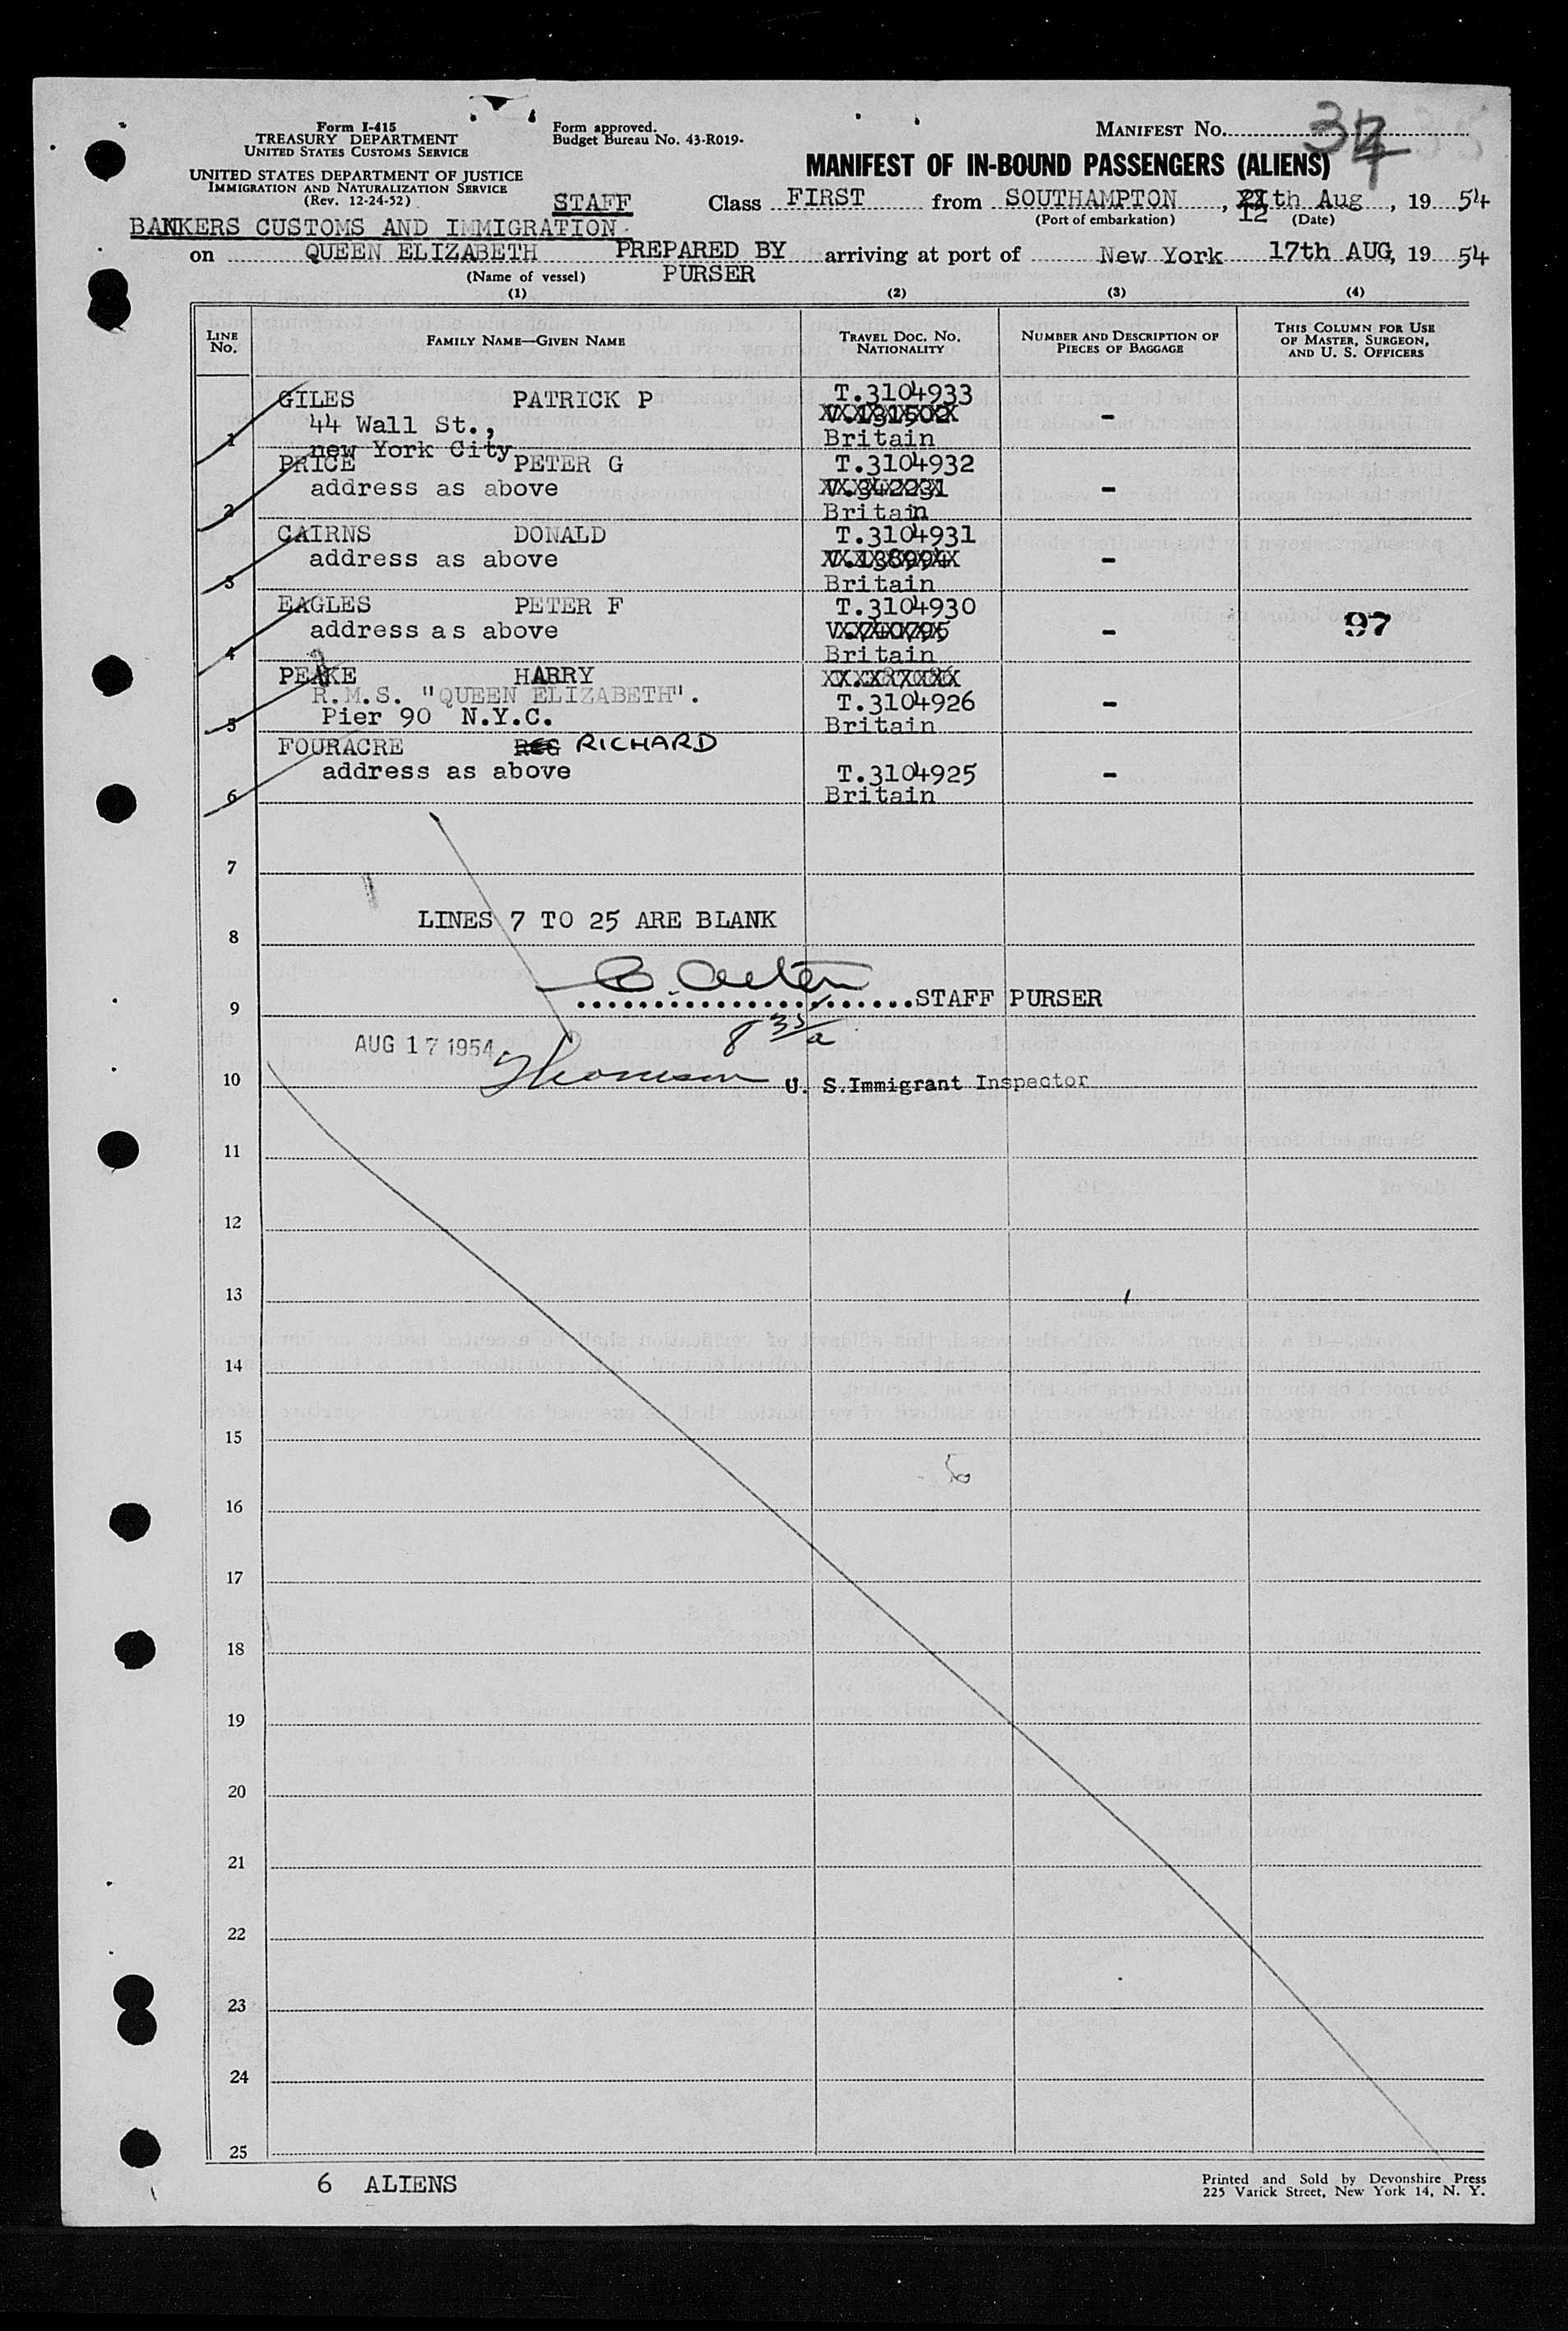 Form I-415
TREASURY DEPARTMENT
UNITED STATES CUSTOMS SERVICE
UNITED STATES DEPARTMENT OF JUSTICE
IMMIGRATION AND NATURALIZATION SERVICE
(Rev. 12-24-52)
Form approved.
Budget Bureau No. 43-R019-
MANIFEST NO.
MANIFEST OF IN-BOUND PASSENGERS (ALIENS)
STAFF Class FIRST from SOUTHAMPTON, 12th Aug, 19 54
(Port of embarkation) (Date)
BANKERS CUSTOMS AND IMMIGRATION
on QUEEN ELIZABETH PREPARED BY arriving at port of New York 17th AUG, 19 54
(Name of vessel) PURSER
(1) (2) (3) (4)
LINE NO. FAMILY NAME—GIVEN NAME TRAVEL DOC. NO. NATIONALITY NUMBER AND DESCRIPTION OF PIECES OF BAGGAGE THIS COLUMN FOR USE OF MASTER, SURGEON, AND U. S. OFFICERS
GILES PATRICK P T.3104933
44 Wall St.,
1 new York City Britain -
PRICE PETER G T.3104932
address as above -
2 Britain
CAIRNS DONALD T.3104931
address as above -
3 Britain
EAGLES PETER F T.3104930
address as above - 97
4 Britain
PEAKE HARRY
R.M.S. "QUEEN ELIZABETH". T.3104926 -
5 Pier 90 N.Y.C. Britain
FOURACRE RICHARD
address as above T.3104925 -
6 Britain
7
LINES 7 TO 25 ARE BLANK
8
STAFF PURSER
9
AUG 17 1954
10 Thomson U. S. Immigrant Inspector
11
12
13
14
15
16
17
18
19
20
21
22
23
24
25
6 ALIENS
Printed and Sold by Devonshire Press
225 Varick Street, New York 14, N. Y.